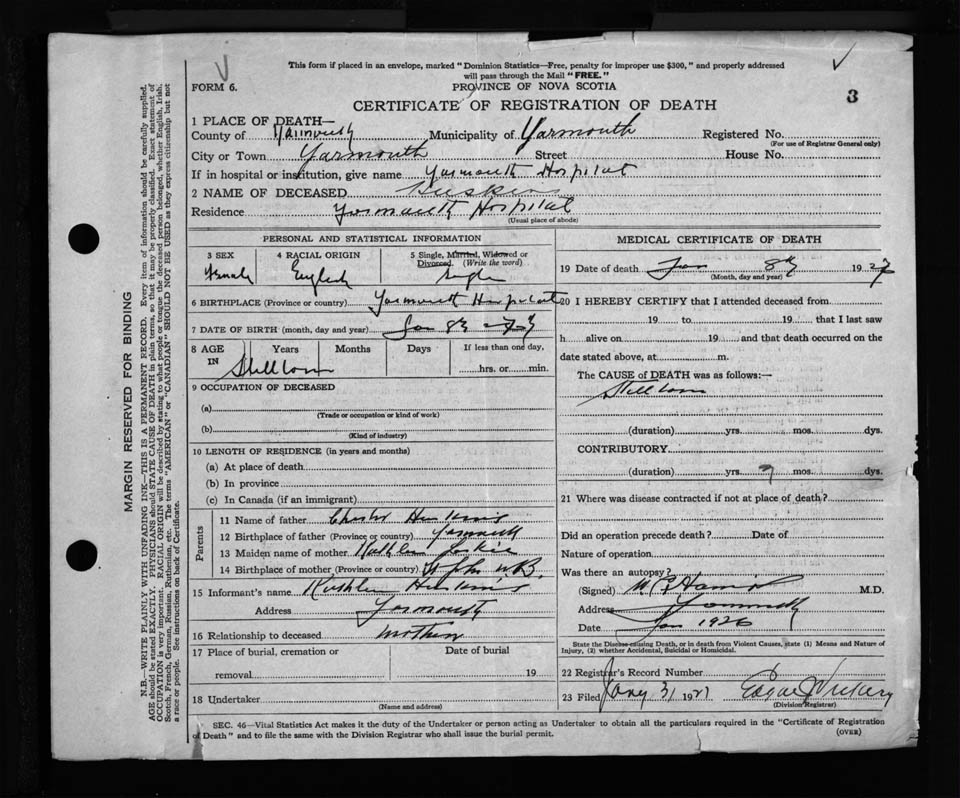 This form if placed in an envelope, marked "Dominion Statistics—Free, penalty for improper use $300," and properly addressed
will pass through the Mail "FREE."
FORM 6.
PROVINCE OF NOVA SCOTIA
3
CERTIFICATE OF REGISTRATION OF DEATH
1 PLACE OF DEATH—
County of Yarmouth Municipality of Yarmouth Registered No.
(For use of Registrar General only)
City or Town Yarmouth Street House No.
If in hospital or institution, give name Yarmouth Hospital
2 NAME OF DECEASED
Residence Yarmouth Hospital
(Usual place of abode)
PERSONAL AND STATISTICAL INFORMATION
3 SEX Female
4 RACIAL ORIGIN English
5 Single, Married, Widowed or Divorced. (Write the word) Single
6 BIRTHPLACE (Province or country) Yarmouth Hospital
7 DATE OF BIRTH (month, day and year) Jan 8th
8 AGE IN Years Months Days If less than one day, hrs. or min.
Stillborn
9 OCCUPATION OF DECEASED
(a)
(Trade or occupation or kind of work)
(b)
(Kind of industry)
10 LENGTH OF RESIDENCE (in years and months)
(a) At place of death
(b) In province
(c) In Canada (if an immigrant)
Parents
11 Name of father Charles
12 Birthplace of father (Province or country) Yarmouth
13 Maiden name of mother Kathleen
14 Birthplace of mother (Province or country) St John N.B.
15 Informant's name Kathleen
Address Yarmouth
16 Relationship to deceased mother
17 Place of burial, cremation or removal Date of burial 19
18 Undertaker
(Name and address)
MEDICAL CERTIFICATE OF DEATH
19 Date of death Jan 8th 1927
(Month, day and year)
20 I HEREBY CERTIFY that I attended deceased from
19 to 19 that I last saw
h alive on 19 and that death occurred on the
date stated above, at m.
The CAUSE of DEATH was as follows:—
Stillborn
(duration) yrs. mos. dys.
CONTRIBUTORY
(duration) yrs. mos. dys.
21 Where was disease contracted if not at place of death?
Did an operation precede death? Date of
Nature of operation
Was there an autopsy?
(Signed) M.D.
Address Yarmouth
Date Jan 1926
State the Disease causing Death, or in death from Violent Causes, state (1) Means and Nature of
Injury, (2) whether Accidental, Suicidal or Homicidal.
22 Registrar's Record Number
23 Filed Jany 31 1927
(Division Registrar)
SEC. 46—Vital Statistics Act makes it the duty of the Undertaker or person acting as Undertaker to obtain all the particulars required in the "Certificate of Registration
of Death" and to file the same with the Division Registrar who shall issue the burial permit.
(OVER)
MARGIN RESERVED FOR BINDING
N.B.—WRITE PLAINLY WITH UNFADING INK—THIS IS A PERMANENT RECORD. Every item of information should be carefully supplied.
AGE should be stated EXACTLY. PHYSICIANS should STATE CAUSE OF DEATH in plain terms, so that it may be properly classified. Exact statement of
OCCUPATION is very important. RACIAL ORIGIN will be described by stating to what people or tongue the deceased person belonged, whether English, Irish,
Scotch, French, German, Russian, Ruthenian, etc. The terms "AMERICAN" or "CANADIAN" SHOULD NOT BE USED as they express citizenship but not
a race or people. See instructions on back of Certificate.